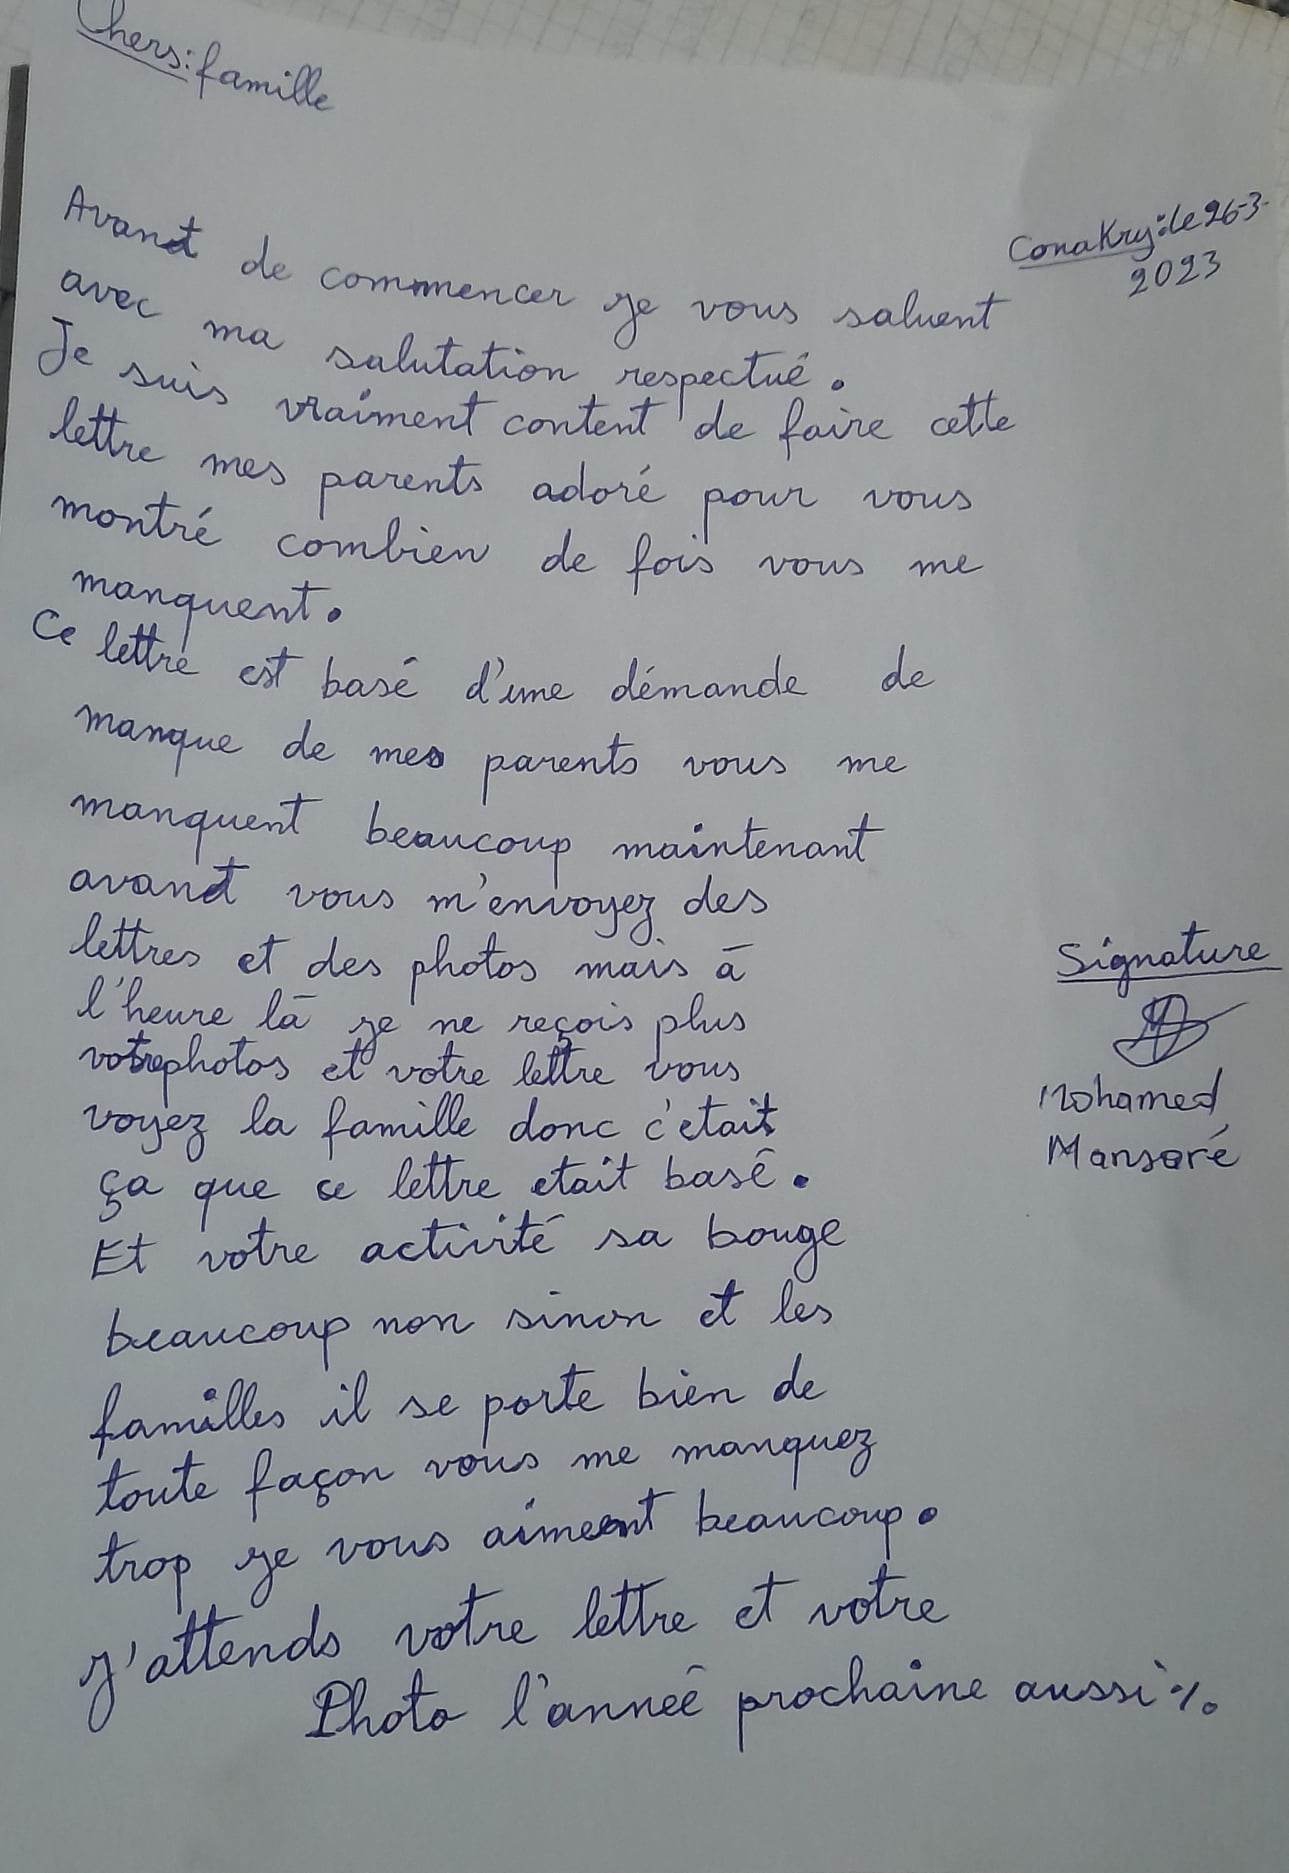 Chers: famille
Conakry: le 26-3-
2023
Avant de commencer je vous saluent
avec ma salutation respectué.
Je suis vraiment content de faire cette
lettre mes parents adoré pour vous
montré combien de fois vous me
manquent.
Ce lettre est basé d'une démande de
manque de mes parents vous me
manquent beaucoup maintenant
avant vous m'envoyez des
lettres et des photos mais à
l'heure là je ne reçois plus
votre photos et votre lettre vous
voyez la famille donc c'etait
ça que ce lettre etait basé.
Et votre activité sa bouge
beaucoup non sinon et les
familles il se porte bien de
toute façon vous me manquez
trop je vous aiment beaucoup.
j'attends votre lettre et votre
Photo l'anneé prochaine aussi %.
Signature
Mohamed
Mansaré